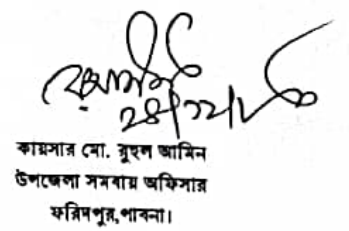 কায়সার মো. রুহুল আমিন
উপজেলা সমবায় অফিসার
ফরিদপুর,পাবনা।